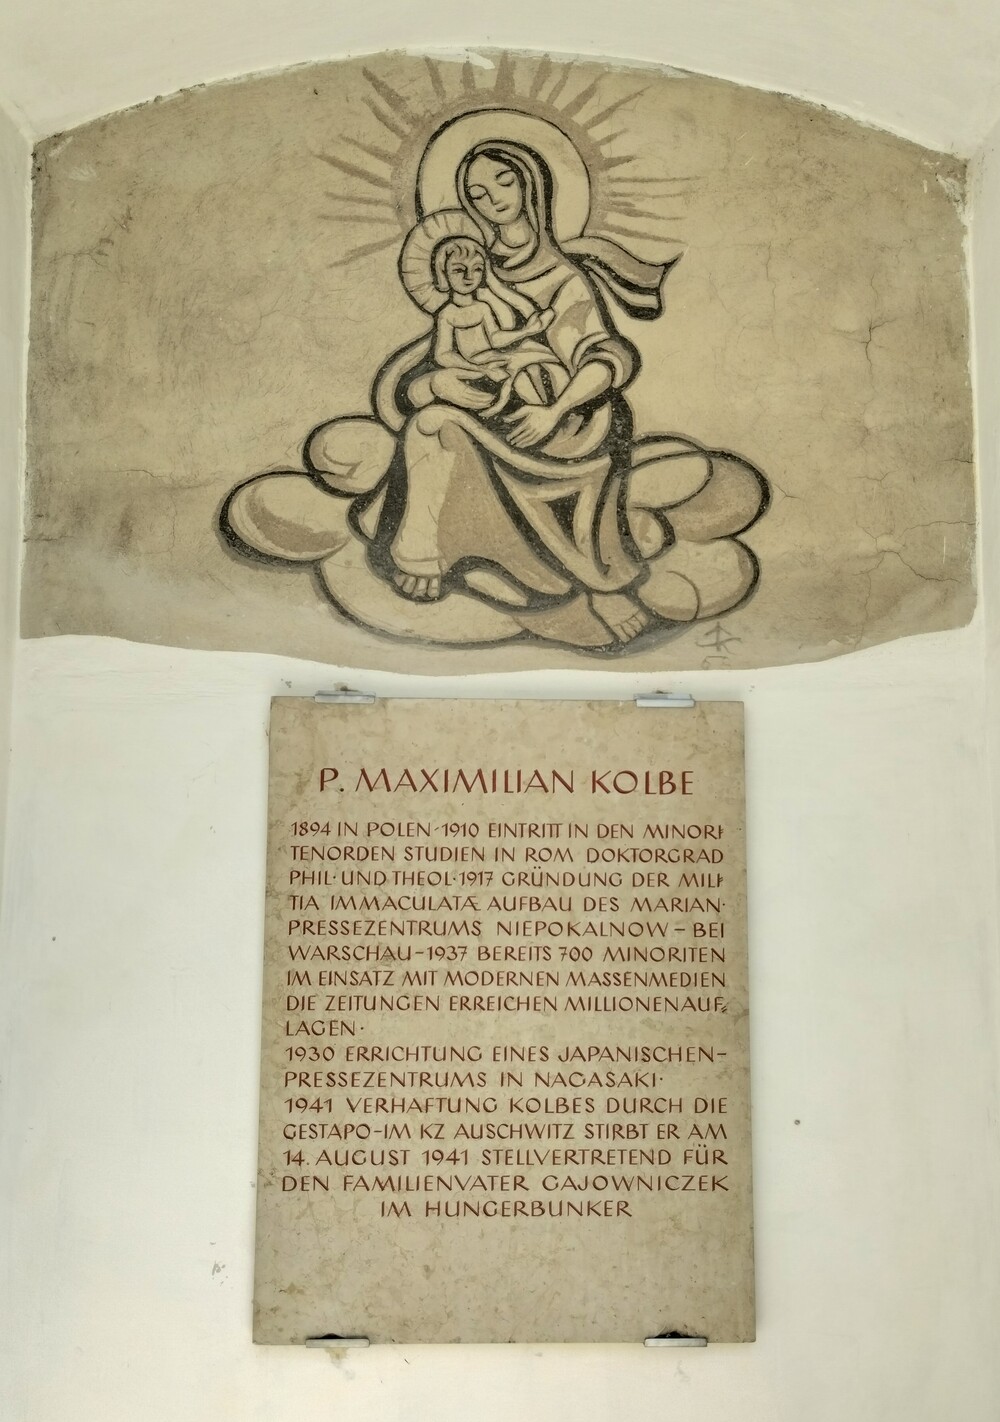 P. MAXIMILIAN KOLBE
1894 IN POLEN-1910 EINTRITT IN DEN MINORI-
TENORDEN STUDIEN IN ROM DOKTORGRAD
PHIL·UND THEOL·1917 GRÜNDUNG DER MILI-
TIA IMMACULATÆ AUFBAU DES MARIAN·
PRESSEZENTRUMS NIEPOKALNOW – BEI
WARSCHAU-1937 BEREITS 700 MINORITEN
IM EINSATZ MIT MODERNEN MASSENMEDIEN
DIE ZEITUNGEN ERREICHEN MILLIONENAUF-
LAGEN·
1930 ERRICHTUNG EINES JAPANISCHEN-
PRESSEZENTRUMS IN NAGASAKI·
1941 VERHAFTUNG KOLBES DURCH DIE
GESTAPO-IM KZ AUSCHWITZ STIRBT ER AM
14. AUGUST 1941 STELLVERTRETEND FÜR
DEN FAMILIENVATER GAJOWNICZEK
IM HUNGERBUNKER